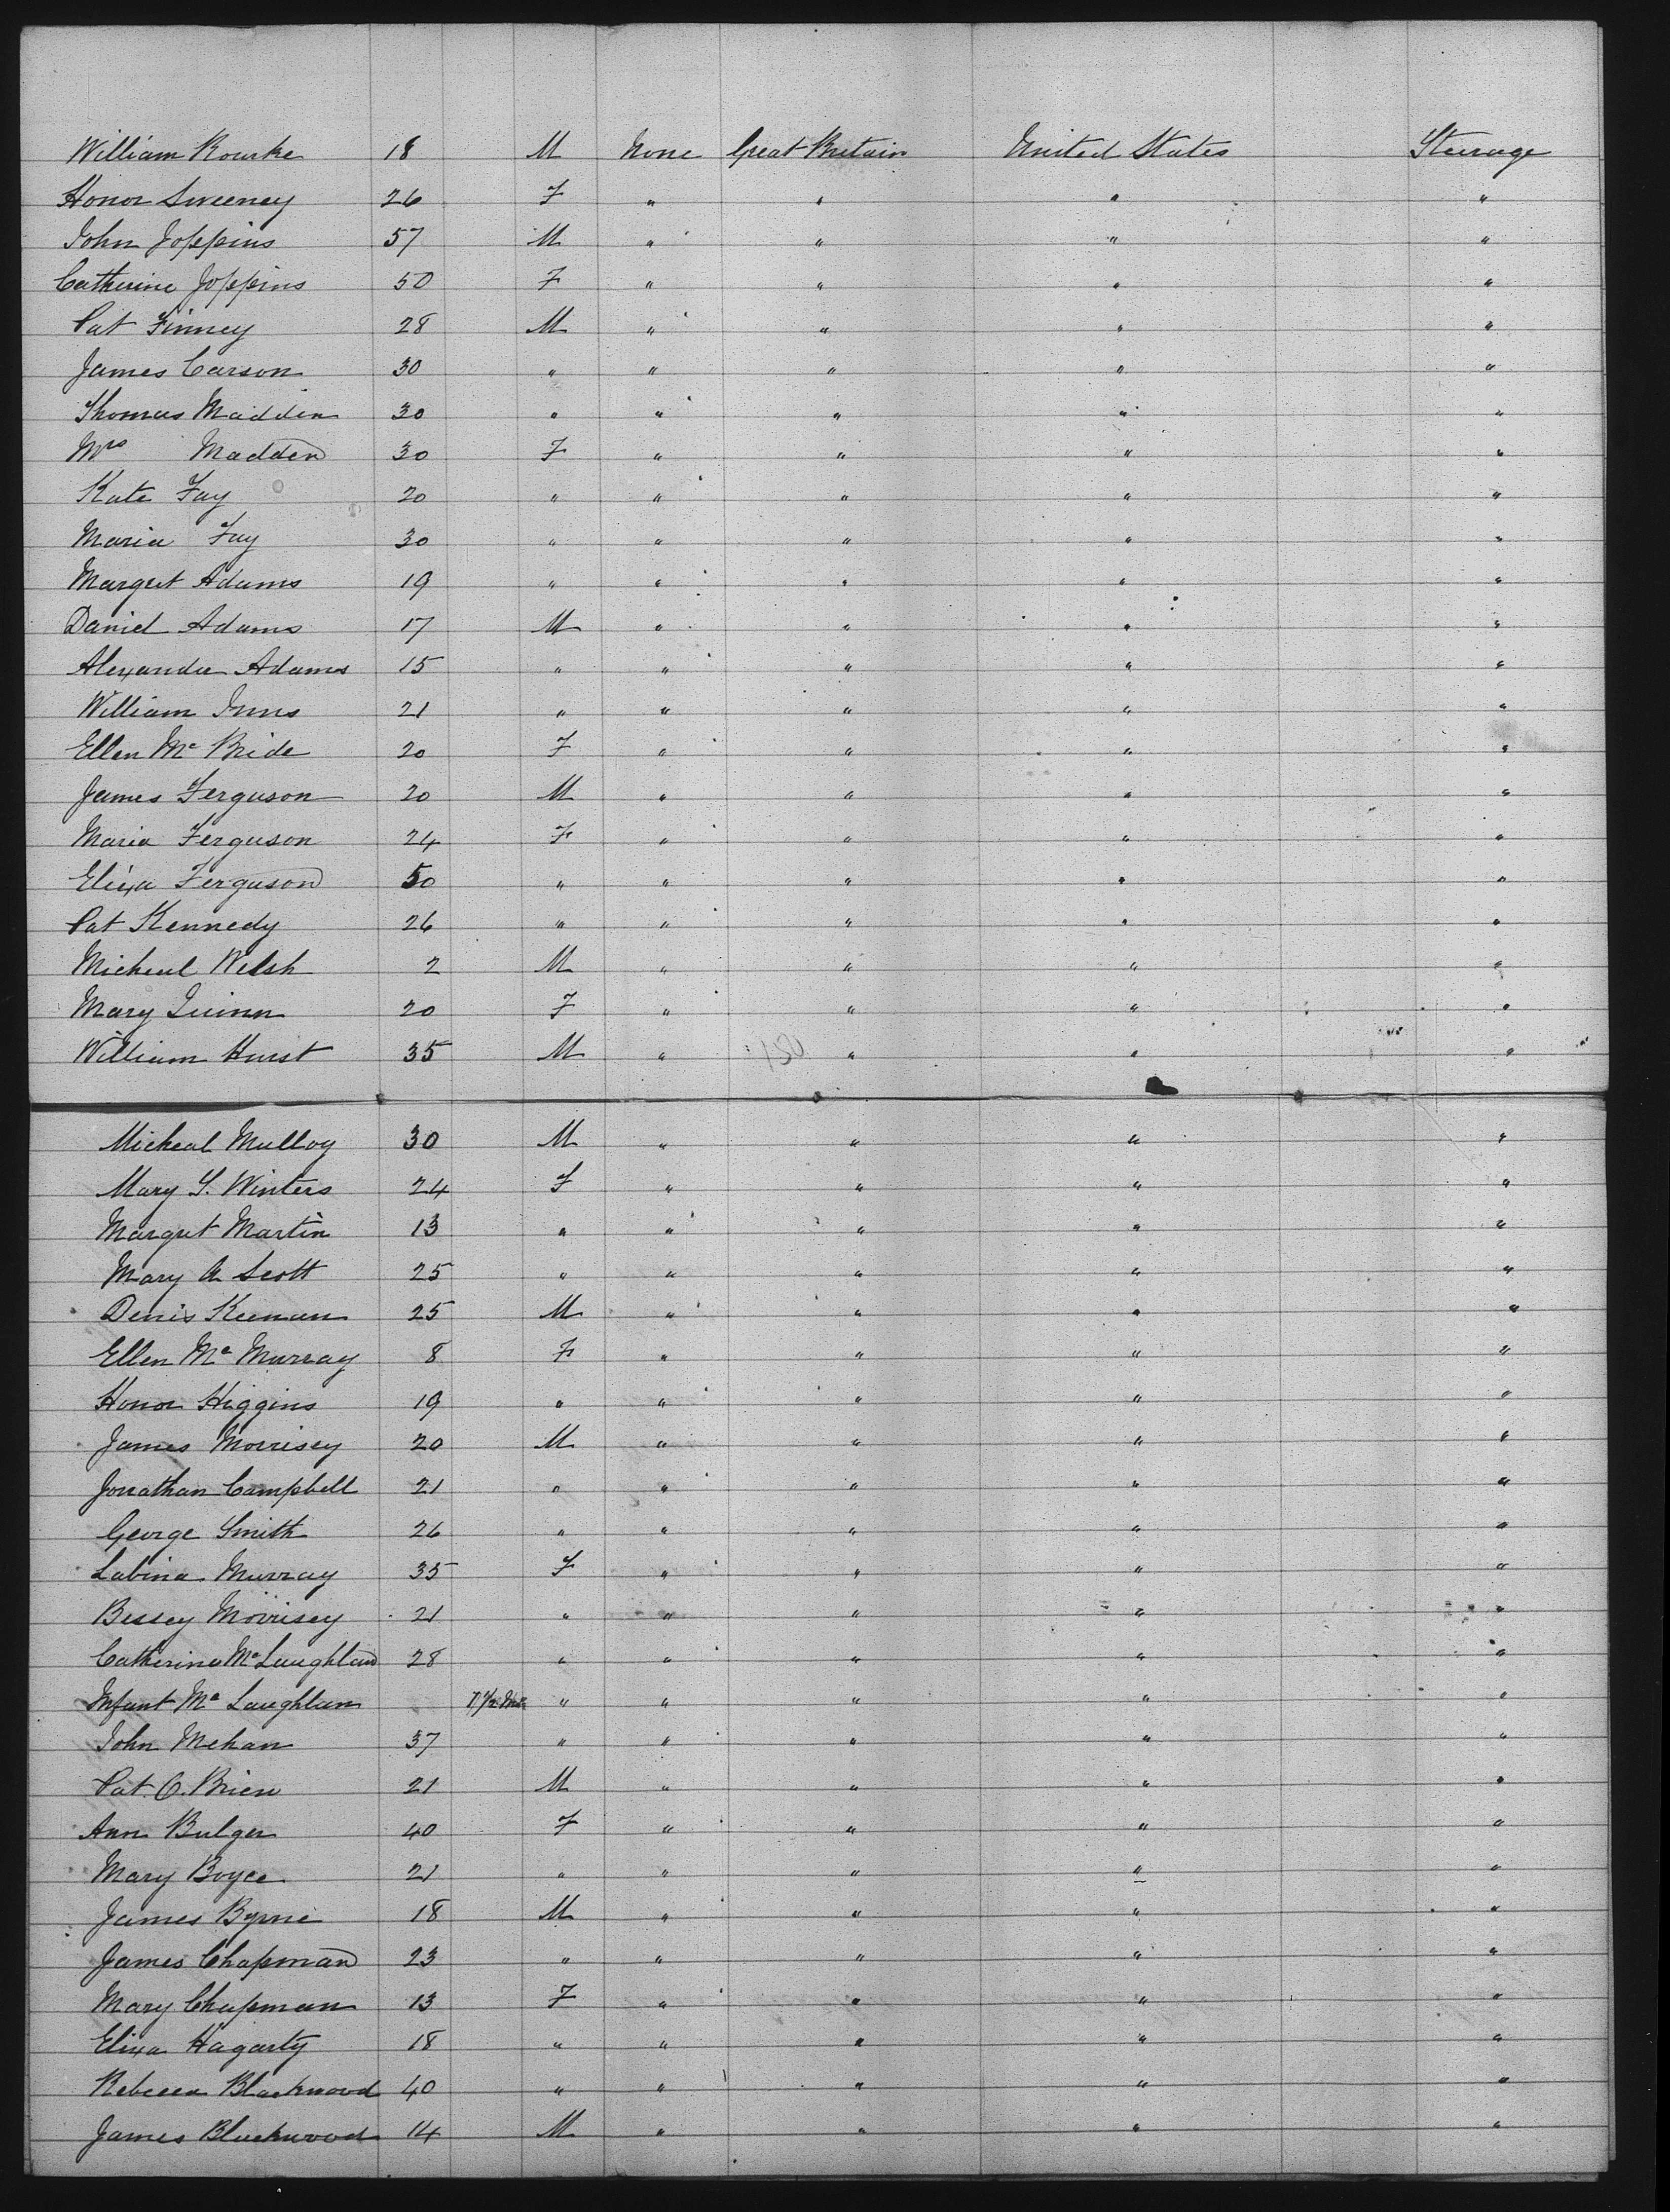 William Rourke 18 M None Great Britain United States Steerage
Honor Sweeney 26 F " " " "
John Joppins 57 M " " " "
Catherine Joppins 50 F " " " "
Pat Finney 28 M " " " "
James Carson 30 " " " " "
Thomas Madden 30 " " " " "
Mrs Madden 30 F " " " "
Kate Fay 20 " " " " "
Maria Fay 30 " " " " "
Margret Adams 19 " " " " "
Daniel Adams 17 M " " " "
Alexander Adams 15 " " " " "
William Inns 21 " " " " "
Ellen Mc Bride 20 F " " " "
James Ferguson 20 M " " " "
Maria Ferguson 24 F " " " "
Eliza Ferguson 50 " " " " "
Pat Kennedy 26 " " " " "
Micheal Welsh 2 M " " " "
Mary Quinn 20 F " " " "
William Hurst 35 M " 150 " " "
Micheal Mulloy 30 M " " " "
Mary Y. Winters 24 F " " " "
Margret Martin 13 " " " " "
Mary A Scott 25 " " " " "
Denis Keenan 25 M " " " "
Ellen Mc Murray 8 F " " " "
Honor Higgins 19 " " " " "
James Morrisey 20 M " " " "
Jonathan Campbell 21 " " " " "
George Smith 26 " " " " "
Sabina Murray 35 F " " " "
Bessey Morrisey 21 " " " " "
Catherine Mc Laughlan 28 " " " " "
Infant Mc Laughlan " " " " "
John Mehan 37 " " " " "
Pat O. Brien 21 M " " " "
Ann Bulger 40 F " " " "
Mary Boyce 21 " " " " "
James Byrne 18 M " " " "
James Chapman 23 " " " " "
Mary Chapman 13 F " " " "
Eliza Hagarty 18 " " " " "
Rebecca Blackwood 40 " " " " "
James Blackwood 14 M " " " "